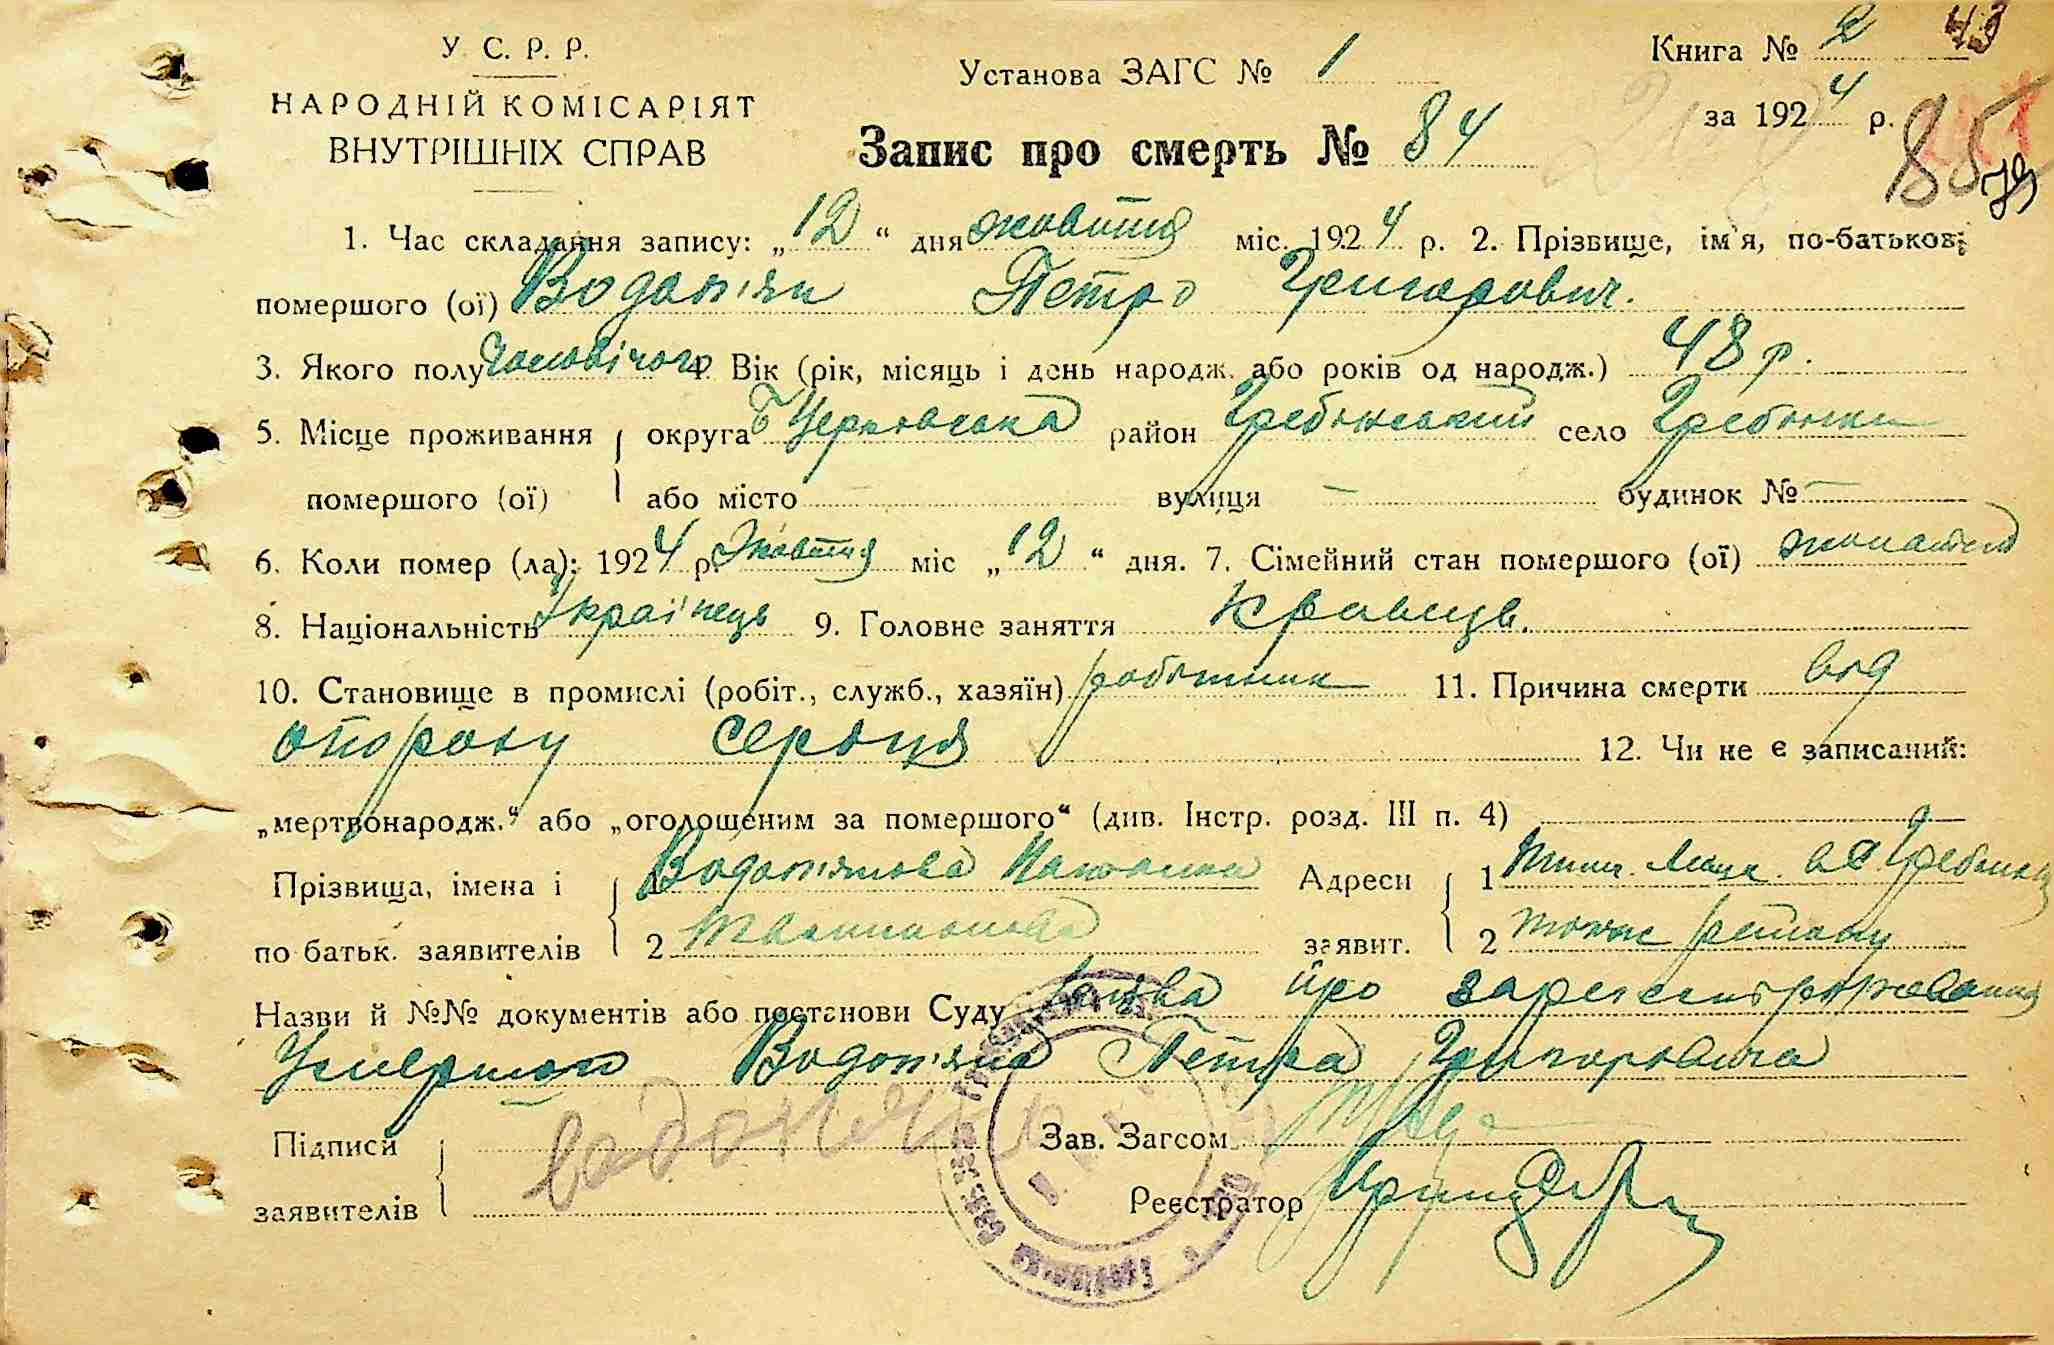 У. С. Р. Р.
НАРОДНІЙ КОМІСАРІЯТ
ВНУТРІШНІХ СПРАВ
Установа ЗАГС № 1
Книга № 2 43
за 1924 р. 85
Запис про смерть № 84
1. Час складання запису: „12“ дня жовтня міс. 1924 р. 2. Прізвище, ім'я, по-батькові
помершого (ої) Водоп'ян Петро Григорович.
3. Якого полу чоловічого 4. Вік (рік, місяць і день народж. або років од народж.) 48 р.
5. Місце проживання округа Б Церковська район Гребінський село Гребінки
помершого (ої) або місто — вулиця — будинок № —
6. Коли помер (ла): 1924 р. Жовтня міс „12“ дня. 7. Сімейний стан помершого (ої)
8. Національність Українець 9. Головне заняття Кравець.
10. Становище в промислі (робіт., служб., хазяїн) робітник 11. Причина смерти від
пороку серця 12. Чи не є записаний:
„мертвонародж.“ або „оголошеним за помершого“ (див. Інстр. розд. III п. 4)
Прізвища, імена і Водоп'янова Адреси 1
по батьк. заявителів 2 заявит. 2 того району
Назви й №№ документів або постанови Суду Заява про зареєстрорування
Умершого Водоп'яна Петра Григоровича
Підписи водопян Зав. Загсом
заявителів Реєстратор